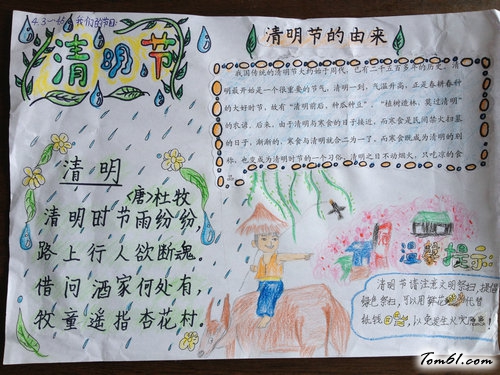 4.3一(6) 我们的节日:
清明节
清明
<唐>杜牧
清明时节雨纷纷,
路上行人欲断魂。
借问酒家何处有,
牧童遥指杏花村。
清明节的由来
我国传统的清明节大约始于周代，已有二千五百多年的历史。清
明最开始是一个很重要的节气，清明一到，气温升高，正是春耕春种
的大好时节，故有“清明前后，种瓜种豆”。“植树造林，莫过清明”
的农谚。后来，由于清明与寒食的日子接近，而寒食是民间禁火扫墓
的日子，渐渐的，寒食与清明就合二为一了，而寒食既成为清明的别
称，也变成为清明时节的一个习俗，清明之日不动烟火，只吃凉的食
品。
温馨提示:
清明节请注意文明祭扫，提倡
绿色祭扫，可以用鲜花 代替
纸钱 ，以免发生火灾
Tom61.com